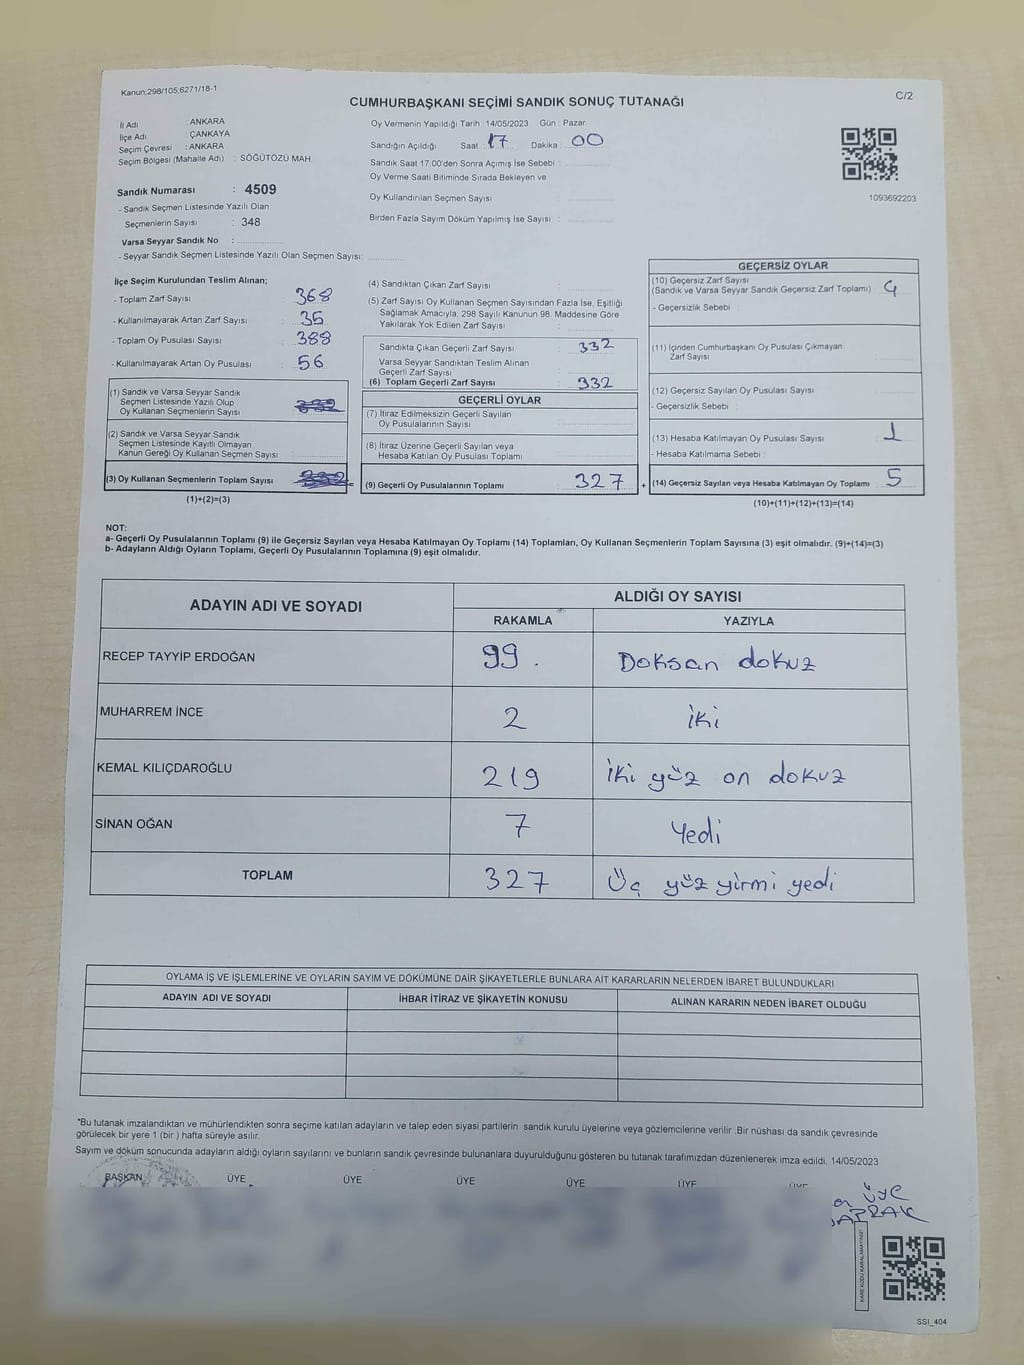 Kanun;298/105;6271/18-1
CUMHURBAŞKANI SEÇİMİ SANDIK SONUÇ TUTANAĞI
C/2
İl Adı : ANKARA
İlçe Adı : ÇANKAYA
Seçim Çevresi : ANKARA
Seçim Bölgesi (Mahalle Adı) : SÖĞÜTÖZÜ MAH.
Sandık Numarası : 4509
- Sandık Seçmen Listesinde Yazılı Olan
Seçmenlerin Sayısı : 348
Varsa Seyyar Sandık No :
- Seyyar Sandık Seçmen Listesinde Yazılı Olan Seçmen Sayısı:
Oy Vermenin Yapıldığı Tarih : 14/05/2023 Gün : Pazar
Sandığın Açıldığı Saat : 17 Dakika : 00
Sandık Saat 17:00'den Sonra Açılmış İse Sebebi :
Oy Verme Saati Bitiminde Sırada Bekleyen ve
Oy Kullandırılan Seçmen Sayısı :
Birden Fazla Sayım Döküm Yapılmış İse Sayısı :
1093692203
İlçe Seçim Kurulundan Teslim Alınan;
- Toplam Zarf Sayısı : 368
- Kullanılmayarak Artan Zarf Sayısı : 35
- Toplam Oy Pusulası Sayısı : 388
- Kullanılmayarak Artan Oy Pusulası : 56
(1) Sandık ve Varsa Seyyar Sandık
Seçmen Listesinde Yazılı Olup
Oy Kullanan Seçmenlerin Sayısı :
(2) Sandık ve Varsa Seyyar Sandık
Seçmen Listesinde Kayıtlı Olmayan
Kanun Gereği Oy Kullanan Seçmen Sayısı :
(3) Oy Kullanan Seçmenlerin Toplam Sayısı :
(1)+(2)=(3)
(4) Sandıktan Çıkan Zarf Sayısı :
(5) Zarf Sayısı Oy Kullanan Seçmen Sayısından Fazla İse, Eşitliği
Sağlamak Amacıyla; 298 Sayılı Kanunun 98. Maddesine Göre
Yakılarak Yok Edilen Zarf Sayısı :
Sandıkta Çıkan Geçerli Zarf Sayısı : 332
Varsa Seyyar Sandıktan Teslim Alınan
Geçerli Zarf Sayısı :
(6) Toplam Geçerli Zarf Sayısı : 332
GEÇERLİ OYLAR
(7) İtiraz Edilmeksizin Geçerli Sayılan
Oy Pusulalarının Sayısı :
(8) İtiraz Üzerine Geçerli Sayılan veya
Hesaba Katılan Oy Pusulası Toplamı :
(9) Geçerli Oy Pusulalarının Toplamı : 327
GEÇERSİZ OYLAR
(10) Geçersiz Zarf Sayısı
(Sandık ve Varsa Seyyar Sandık Geçersiz Zarf Toplamı) :
- Geçersizlik Sebebi :
(11) İçinden Cumhurbaşkanı Oy Pusulası Çıkmayan
Zarf Sayısı :
(12) Geçersiz Sayılan Oy Pusulası Sayısı :
- Geçersizlik Sebebi :
(13) Hesaba Katılmayan Oy Pusulası Sayısı : 1
- Hesaba Katılmama Sebebi :
(14) Geçersiz Sayılan veya Hesaba Katılmayan Oy Toplamı : 5
(10)+(11)+(12)+(13)=(14)
NOT:
a- Geçerli Oy Pusulalarının Toplamı (9) ile Geçersiz Sayılan veya Hesaba Katılmayan Oy Toplamı (14) Toplamları, Oy Kullanan Seçmenlerin Toplam Sayısına (3) eşit olmalıdır. (9)+(14)=(3)
b- Adayların Aldığı Oyların Toplamı, Geçerli Oy Pusulalarının Toplamına (9) eşit olmalıdır.
ADAYIN ADI VE SOYADI
ALDIĞI OY SAYISI
RAKAMLA YAZIYLA
RECEP TAYYİP ERDOĞAN 99. Doksan dokuz
MUHARREM İNCE 2 iki
KEMAL KILIÇDAROĞLU 219 iki yüz on dokuz
SİNAN OĞAN 7 Yedi
TOPLAM 327 Üç yüz yirmi yedi
OYLAMA İŞ VE İŞLEMLERİNE VE OYLARIN SAYIM VE DÖKÜMÜNE DAİR ŞİKAYETLERLE BUNLARA AİT KARARLARIN NELERDEN İBARET BULUNDUKLARI
ADAYIN ADI VE SOYADI İHBAR İTİRAZ VE ŞİKAYETİN KONUSU ALINAN KARARIN NEDEN İBARET OLDUĞU
*Bu tutanak imzalandıktan ve mühürlendikten sonra seçime katılan adayların ve talep eden siyasi partilerin sandık kurulu üyelerine veya gözlemcilerine verilir .Bir nüshası da sandık çevresinde
görülecek bir yere 1 (bir ) hafta süreyle asılır.
Sayım ve döküm sonucunda adayların aldığı oyların sayılarını ve bunların sandık çevresinde bulunanlara duyurulduğunu gösteren bu tutanak tarafımızdan düzenlenerek imza edildi. 14/05/2023
BAŞKAN ÜYE ÜYE ÜYE ÜYE ÜYE ÜYE
ÜYE
KARE KODU KARALAMAYINIZ!
SSI_404